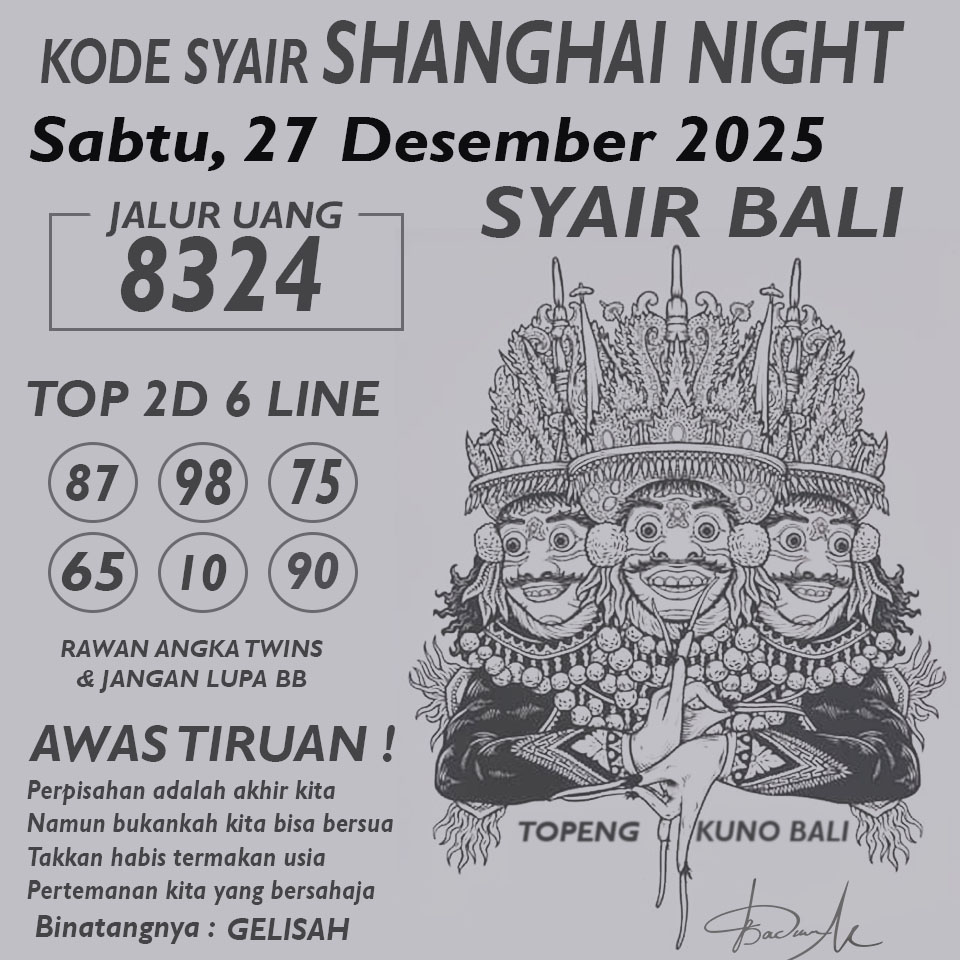 KODE SYAIR SHANGHAI NIGHT
Sabtu, 27 Desember 2025
JALUR UANG
8324
SYAIR BALI
TOP 2D 6 LINE
87 98 75
65 10 90
RAWAN ANGKA TWINS
& JANGAN LUPA BB
AWAS TIRUAN !
Perpisahan adalah akhir kita
Namun bukankah kita bisa bersua
Takkan habis termakan usia
Pertemanan kita yang bersahaja
Binatangnya : GELISAH
TOPENG KUNO BALI